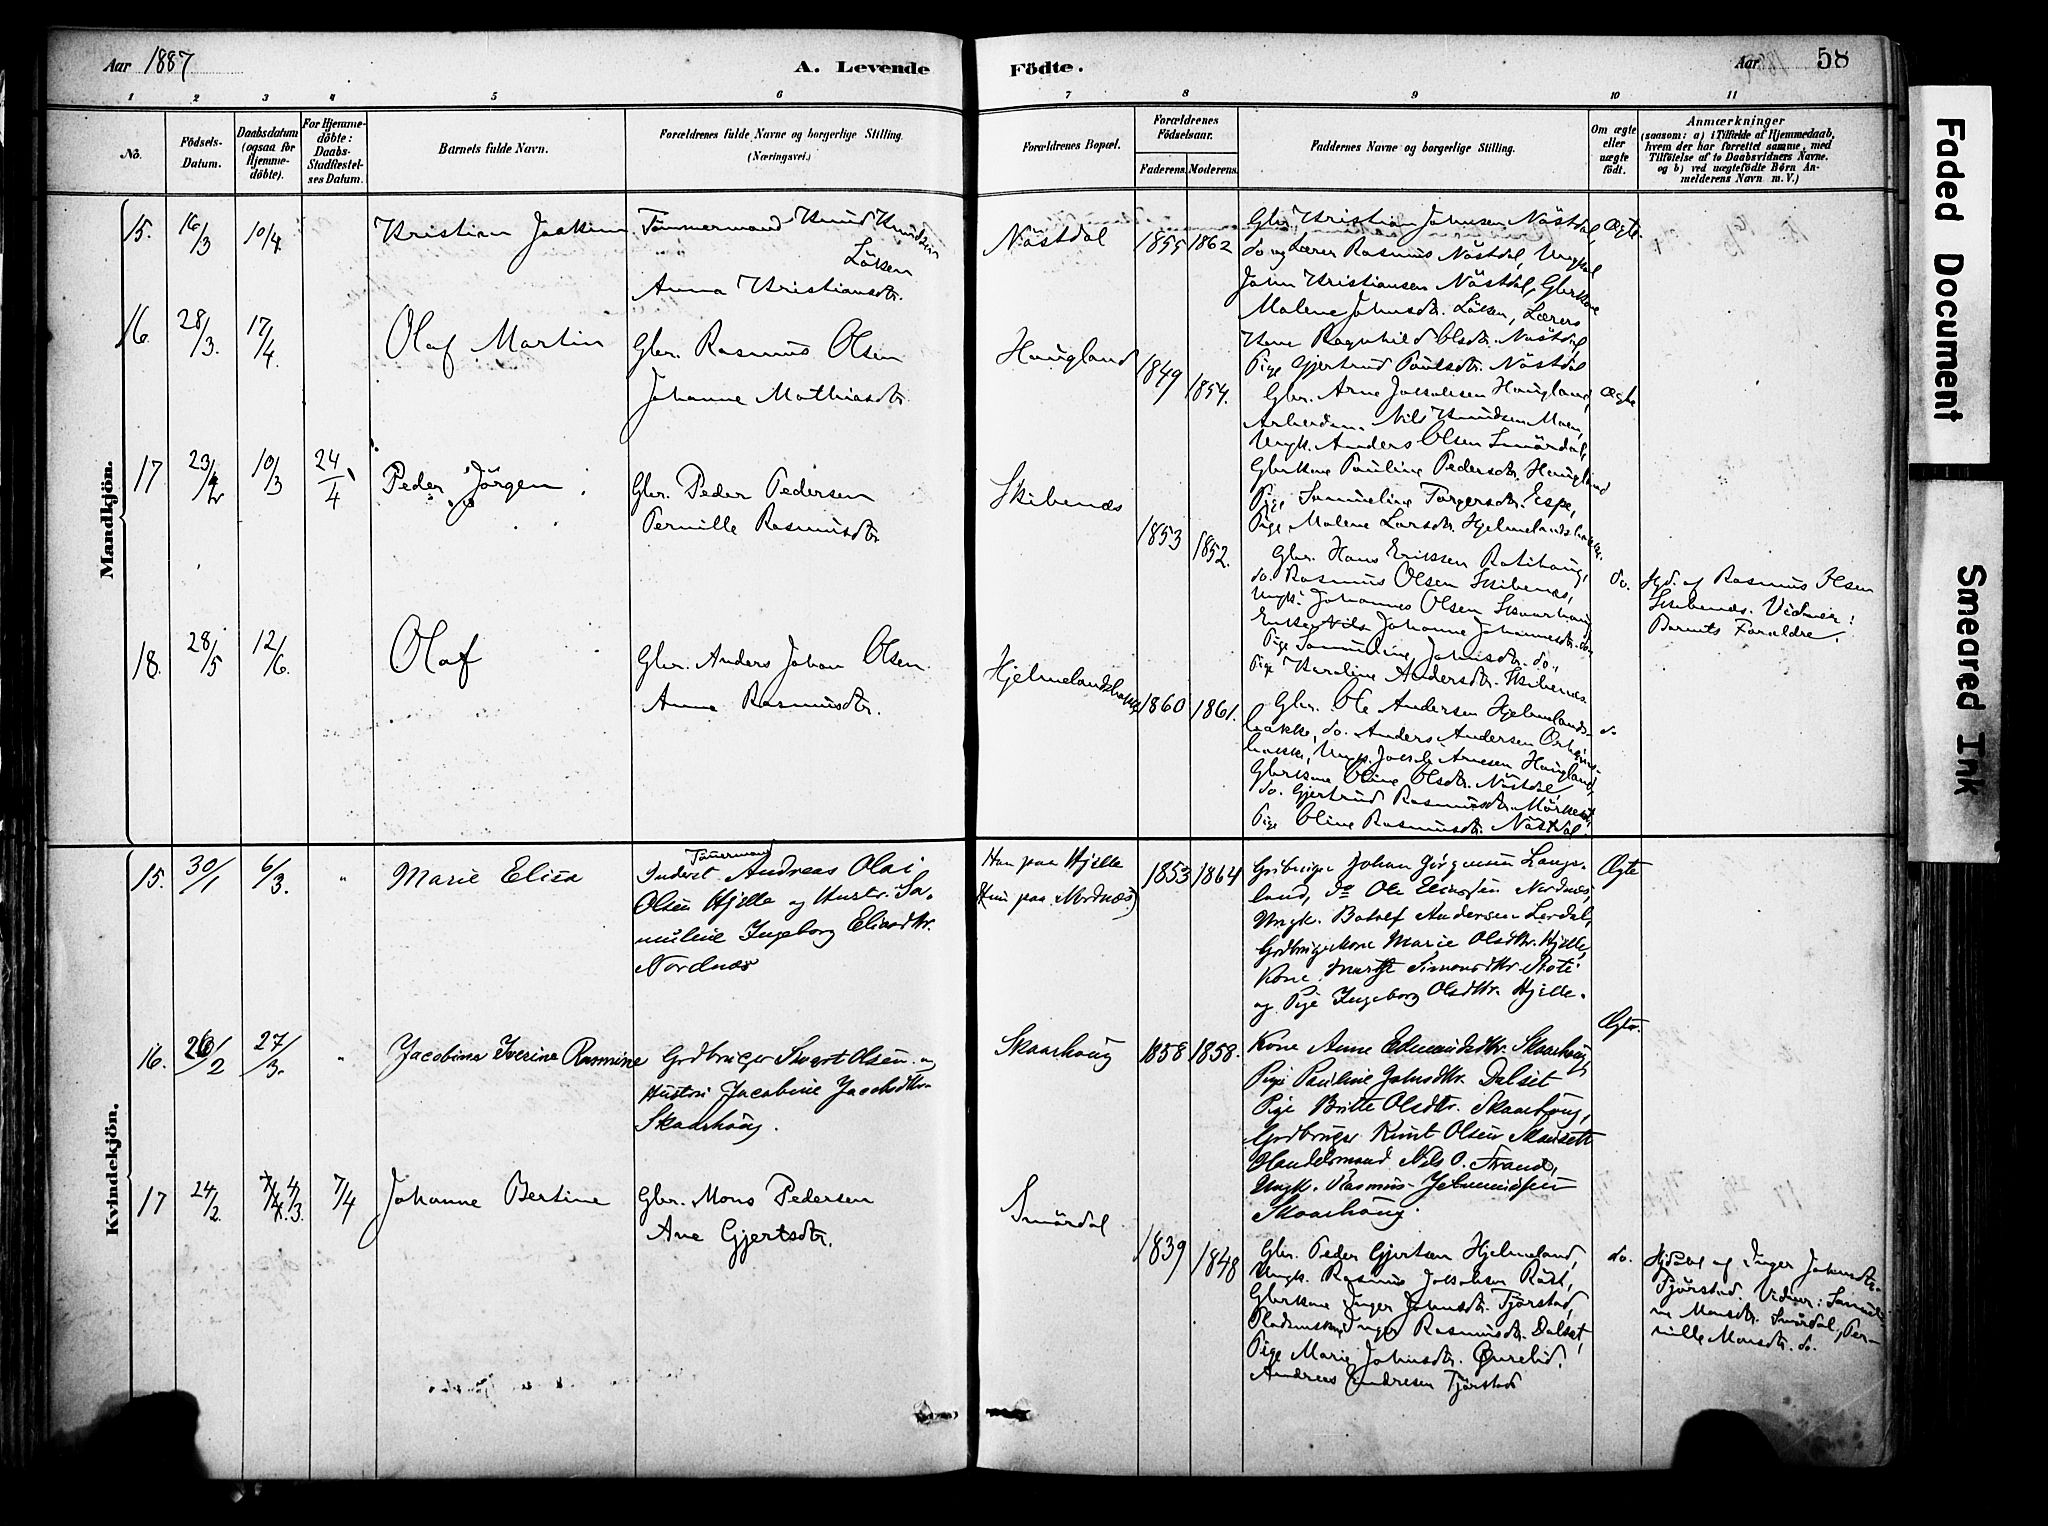 Aar 1887
A. Levende
Födte.
Aar
58
1 2 3 4 5 6 7 8 9 10 11
No.
Födsels-
Datum.
Daabsdatum
(ogsaa for
Hjemme-
döbte).
For Hjemme-
döbte:
Daabs-
Stadfæstel-
ses Datum.
Barnets fulde Navn.
Forældrenes fulde Navne og borgerlige Stilling.
(Næringsvei.)
Forældrenes Bopæl.
Forældrenes
Födselsaar.
Faderens. Moderens.
Faddernes Navne og borgerlige Stilling.
Om ægte
eller
uægte
födt.
Anmærkninger
(saasom: a) i Tilfælde af Hjemmedaab,
hvem der har forrettet samme, med
Tilföielse af to Daabsvidners Navne.
og b) ved uægtefödte Börn An-
melderens Navn m. V.)
Mandkjön.
15. 16/3 10/4 Kristian Joakim
Tömmermand Knud Knudsen
Löken
Anna Kristiansdtr.
Nästdal 1855 1862
Gbr. Kristian Johnsen Nästdal,
do og Lærer Rasmus Nästdal, Ungkal
John Kristiansen Nästdal, Gbrkone
Malene Johnsdtr. Löken, Lærers
Kone Ragnhild Olsdtr. Nästdal
Pige Gjertrud Paulsdtr. Nästdal
Ægte.
16. 28/3. 17/4. Olaf Martin
Gbr. Rasmus Olsen
Johanne Mathiasdtr.
Haugland 1849 1854.
Gbr. Arne Jakobsen Haugland,
Arbeidsm. Nils Knudsen Moen,
Ungk. Anders Olsen Smördal,
Gbrkone Pauline Pedersdtr. Haugland
Pige Samueline Torgersdtr. Espe,
Pige Malene Larsdtr. Hjelmelandsbakke.
Ægte
17 23/2 10/3 24/4 Peder Jörgen
Gbr. Peder Pedersen
Pernille Rasmusdtr.
Skibenæs 1853 1852.
Gbr. Hans Eriksen Rotihaug,
do. Rasmus Olsen Skibenæs,
Ungk. Johannes Olsen Skaarhaug
Enke Johanne Johannesdtr. do.
Pige Samueline Johnsdtr. do.,
Pige Karoline Andersdtr. Skibenæs
do.
Hjd. af Rasmus Olsen
Skibenæs. Vidner:
Barnets Forældre.
18. 28/5 12/6. Olaf
Gbr. Anders Johan Olsen
Anna Rasmusdtr.
Hjelmelandsbakke 1860 1861.
Gbr. Ole Andersen Hjelmelands-
bakke, do. Anders Andersen
bakke, Ungk. Jakob Arnesen Haugland,
Gbrkone Oline Olsdtr. Nästdal,
do. Gjertrud Rasmusdtr.
Pige Oline Rasmusdtr. Nästdal.
do
Kvindekjön.
15. 30/1 6/3. " Marie Elisa
Tömmermand
Inderst Andreas Olai
Olsen Hjelle og Hustr. Sa-
muline Ingeborg Eliasdtr.
Nordnæs
Han paa Hjelle
(Hun paa Nordnæs.)
1853 1864
Grdbruger Johan Jörgensen Langs-
land, do Ole Nordnæs,
Ungk. Botolf Andersen Lerdal,
Grdbrugerkone Marie Olsdtr. Hjelle,
Kone Simonsdtr
og Pige Ingeborg Olsdtr. Hjelle.
Ægte
16. 26/2 27/3. " Jacobina Iverine Rasmine
Grdbruger Sivert Olsen og
Hustru Jacobine Jacobsdtr.
Skaarhaug.
Skaarhaug 1858 1858.
Kone Anne Edmundsdtr. Skaarhaug,
Pige Pauline Johnsdtr. Dalset
Pige Britte Olsdtr. Skaarhaug,
Grdbruger Knut Olsen
Handelsmand Nils O. Strand,
Ungk. Rasmus
Skaarhaug.
Ægte.
17 24/2. 4/3. 7/4 Johanne Bertine
Gbr. Mons Pedersen
Ane Gjertsdtr.
Smördal 1839 1848
Gbr. Peder Gjertsen Hjelmeland,
Ungk. Rasmus Jakobsen Röst,
Gbrkone Inger Johnsdtr. Tjörstad,
Inger Rasmusdtr. Dalset,
Pige Marie Johnsdtr. Öurelid,
Andreas Tjörstad
do.
Hjdaab af Inger Johnsdtr.
Tjörstad. Vidner: Samueli-
ne Monsdtr. Smördal, Per-
nille Monsdtr. do.
Faded Document
Smeared Ink